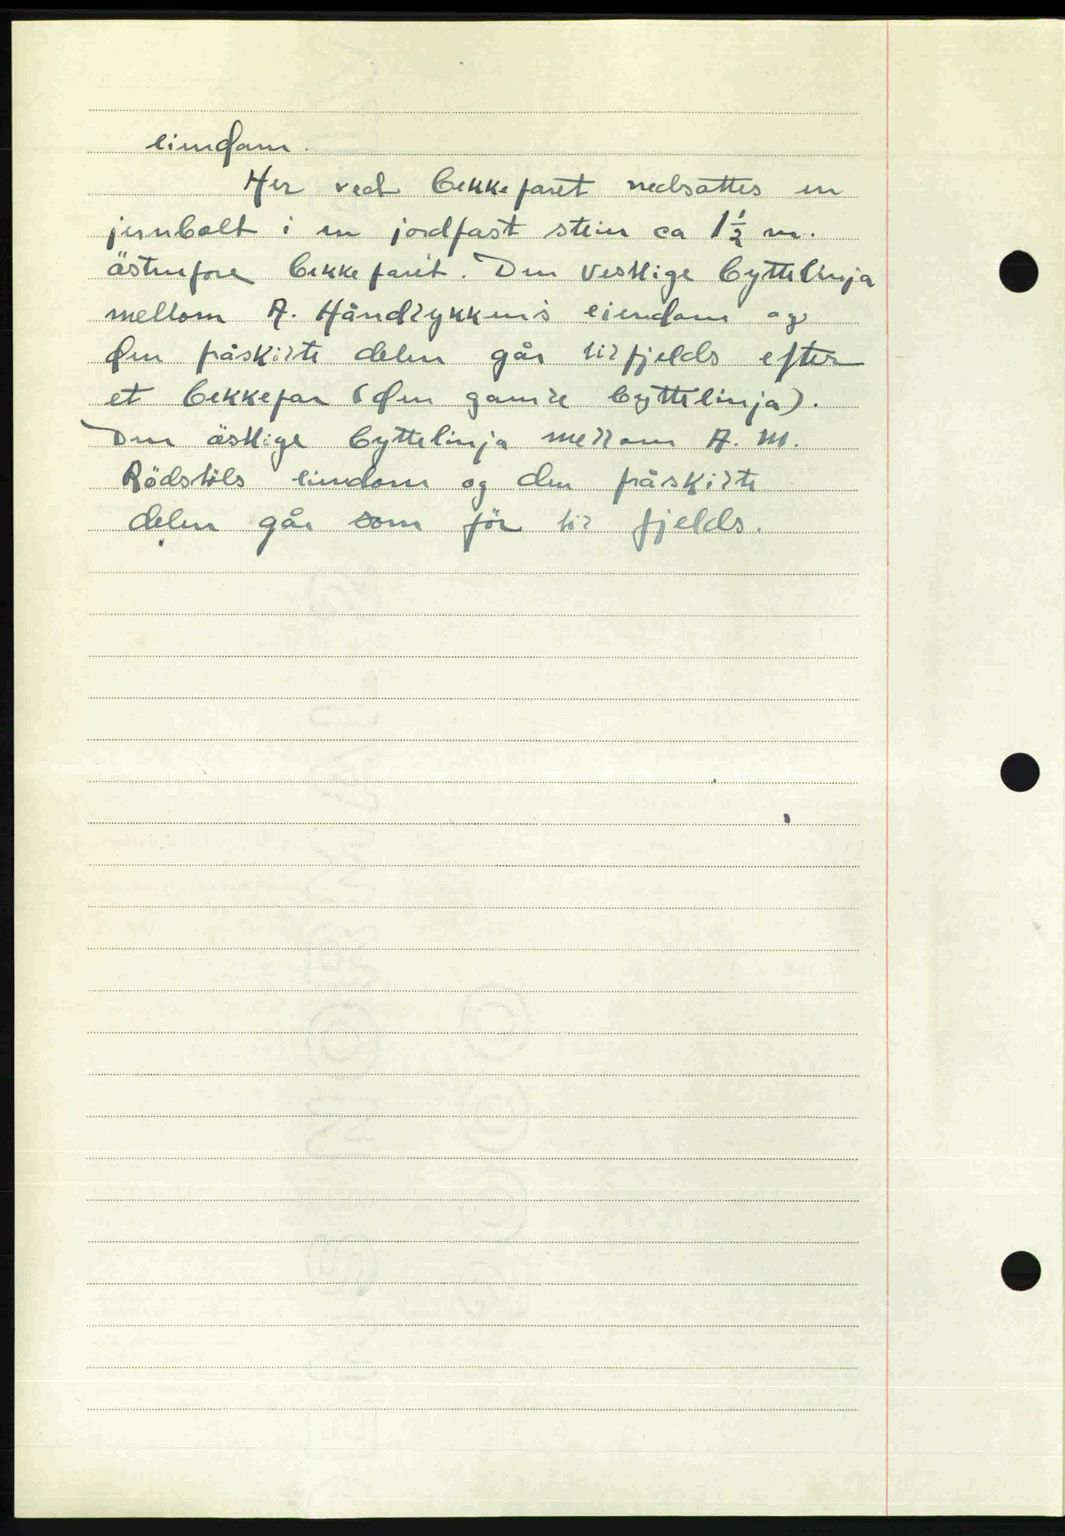 eiendom.
Her ved bekkefaret nedsattes en
jernbolt i en jordfast stein ca 1½ m.
östenfore bekkefaret. Den vestlige byttelinja
mellom A. Håndlykkens eiendom og
den fråskilte delen går tilfjelds efter
et bekkefar (den gamle byttelinja).
Den östlige byttelinja mellom A. M.
Rödstöls eiendom og den fråskilte
delen går som för til fjelds.